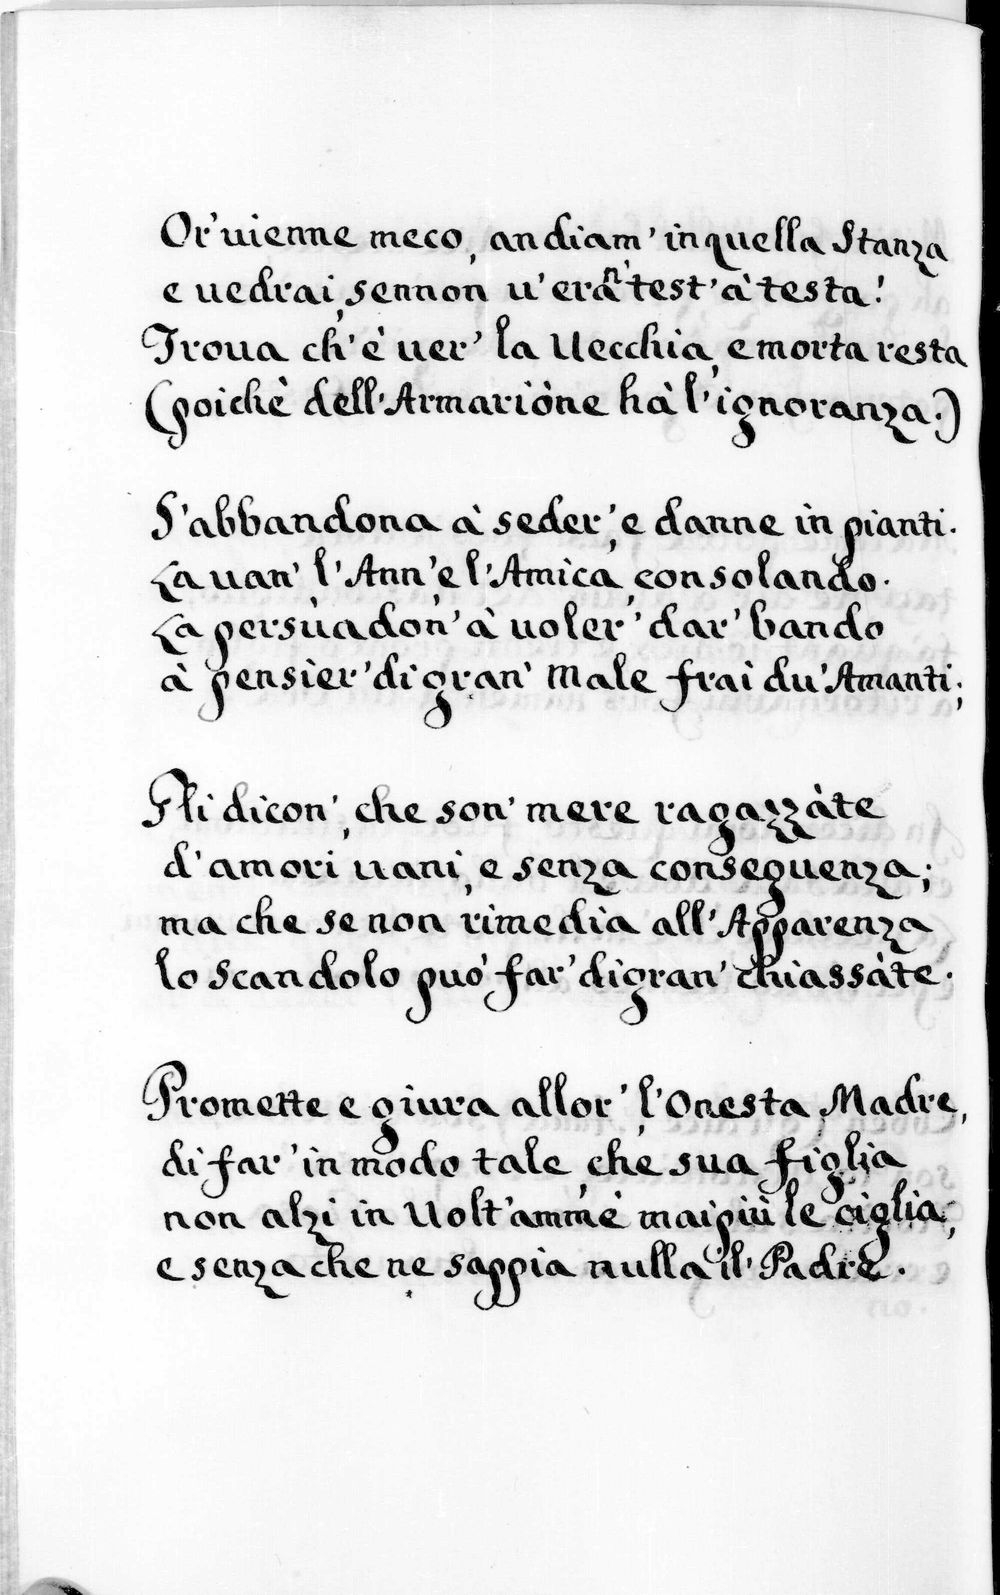 Or' uienne meco, andiam' in quella Stanza
e uedrai, sennon u' eran' test' à testa!
Troua ch' è uer' la Uecchia, e morta resta
(poichè dell' Armariòne hà l' ignoranza.)
S' abbandona à seder', e danne in pianti.
La uan' l' Ann', e l' Amica, consolando.
La persùadon' à uoler' dar' bando
à pensier' di gran' Male frai du' Amanti;
Gli dicon', che son' mere ragazzàte
d' amori uani, e senza conseguenza;
ma che se non rimedia all' Apparenza,
lo Scandolo può far' di gran' chiassàte.
Promette e giura allor' l' Onesta Madre,
di far' in modo tale, che sua figlia
non alzi in Uolt' ammè maipiù le ciglia;
e senza che ne sappia nulla il' Padre.